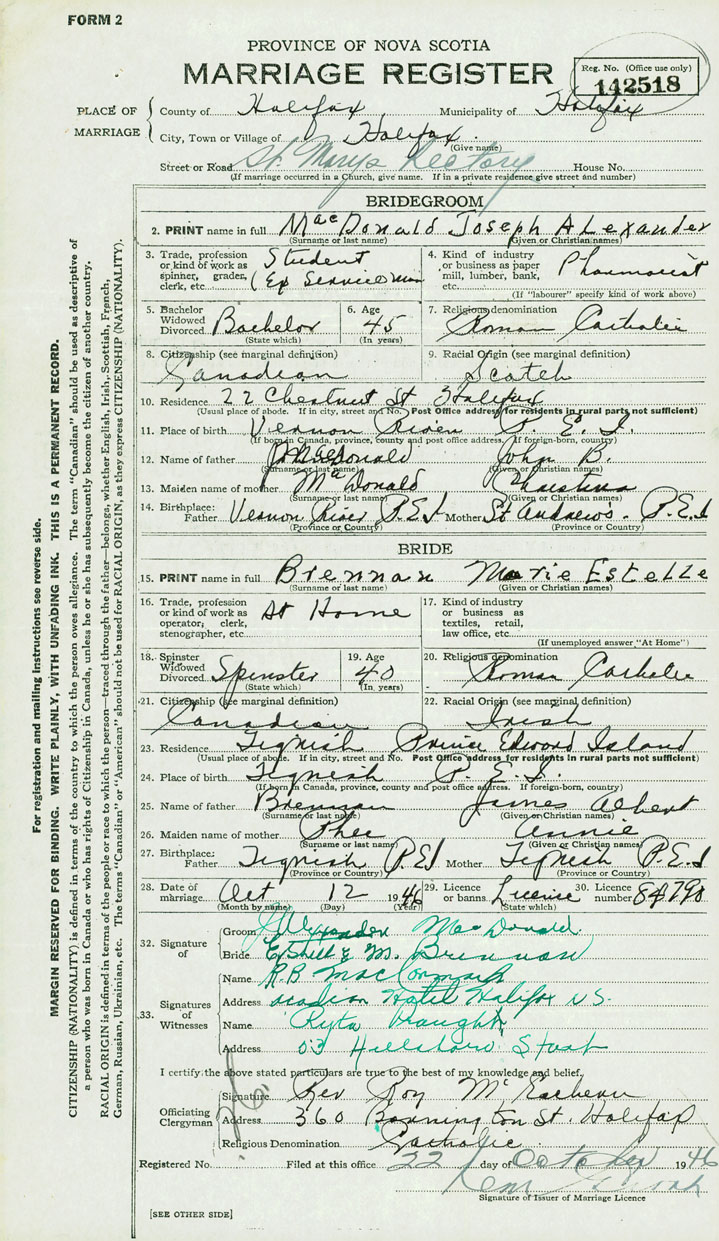 FORM 2
PROVINCE OF NOVA SCOTIA
MARRIAGE REGISTER
Reg. No. (Office use only)
142518
PLACE OF MARRIAGE
County of Halifax Municipality of Halifax
City, Town or Village of Halifax.
(Give name)
Street or Road St. Marys Rectory House No.
(If marriage occurred in a Church, give name. If in a private residence give street and number)
BRIDEGROOM
2. PRINT name in full MacDonald Joseph ALexander
(Surname or last name) (Given or Christian names)
3. Trade, profession or kind of work as spinner, grader, clerk, etc. Student (Ex Service man
4. Kind of industry or business as paper mill, lumber, bank, etc. Pharmacist
(If "labourer" specify kind of work above)
5. Bachelor Widowed Divorced Bachelor
(State which)
6. Age 45
(In years)
7. Religious denomination Roman Catholic
8. Citizenship (see marginal definition) Canadian
9. Racial Origin (see marginal definition) Scotch
10. Residence 22 Chestnut St Halifax
(Usual place of abode. If in city, street and No. Post Office address for residents in rural parts not sufficient)
11. Place of birth Vernon River P. E. I.
(If born in Canada, province, county and post office address. If foreign-born, country)
12. Name of father MacDonald John B.
(Surname or last name) (Given or Christian names)
13. Maiden name of mother McDonald Christina
(Surname or last name) (Given or Christian names)
14. Birthplace: Father Vernon River P.E.I Mother St Andrew's. P.E.I
(Province or Country) (Province or Country)
BRIDE
15. PRINT name in full Brennan Marie EstelLe
(Surname or last name) (Given or Christian names)
16. Trade, profession or kind of work as operator; clerk, stenographer, etc. At Home
17. Kind of industry or business as textiles, retail, law office, etc.
(If unemployed answer "At Home")
18. Spinster Widowed Divorced Spinster
(State which)
19. Age 40
(In years)
20. Religious denomination Roman Catholic
21. Citizenship (see marginal definition) Canadian
22. Racial Origin (see marginal definition) Irish
23. Residence Tignish Prince Edward Island
(Usual place of abode. If in city, street and No. Post Office address for residents in rural parts not sufficient)
24. Place of birth Tignish P. E. I.
(If born in Canada, province, county and post office address. If foreign-born, country)
25. Name of father Brennan James Albert
(Surname or last name) (Given or Christian names)
26. Maiden name of mother Phee Annie
(Surname or last name) (Given or Christian names)
27. Birthplace: Father Tignish P.E.I Mother Tignish P.E.I
(Province or Country) (Province or Country)
28. Date of marriage Oct 12 1946
(Month by name) (Day) (Year)
29. Licence or banns License
(State which)
30. Licence number 84790
32. Signature of
Groom J Alexander MacDonald
Bride Estelle M. Brennan
33. Signatures of Witnesses
Name R.B MacCormack
Address Acadian Hotel Halifax N.S.
Name Ryta
Address 03 Hillsboro Street
I certify the above stated particulars are true to the best of my knowledge and belief.
Officiating Clergyman
Signature Rev Roy McEachern
Address 360 Barrington St. Halifax
Religious Denomination Catholic
Registered No. Filed at this office 22 day of October 1946
Signature of Issuer of Marriage Licence
[SEE OTHER SIDE]
For registration and mailing instructions see reverse side.
MARGIN RESERVED FOR BINDING. WRITE PLAINLY, WITH UNFADING INK. THIS IS A PERMANENT RECORD.
CITIZENSHIP (NATIONALITY) is defined in terms of the country to which the person owes allegiance. The term "Canadian" should be used as descriptive of
a person who was born in Canada or who has rights of Citizenship in Canada, unless he or she has subsequently become the citizen of another country.
RACIAL ORIGIN is defined in terms of the people or race to which the person—traced through the father—belongs, whether English, Irish, Scottish, French,
German, Russian, Ukrainian, etc. The terms "Canadian" or "American" should not be used for RACIAL ORIGIN, as they express CITIZENSHIP (NATIONALITY).